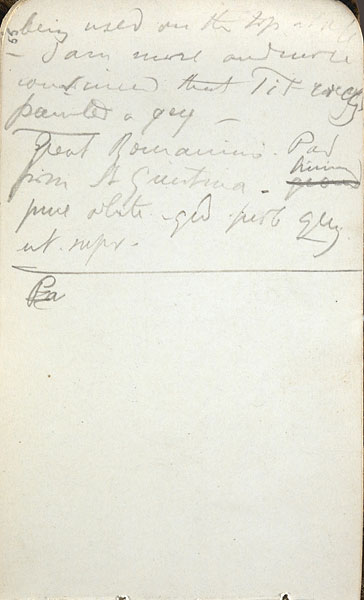 65
being used on the top
I am more and more
convinced that Tit
painted a grey —
Great Romanino. Pad
from St Guistina.
pure white. gld. prob grey
ut. supr.
Pa